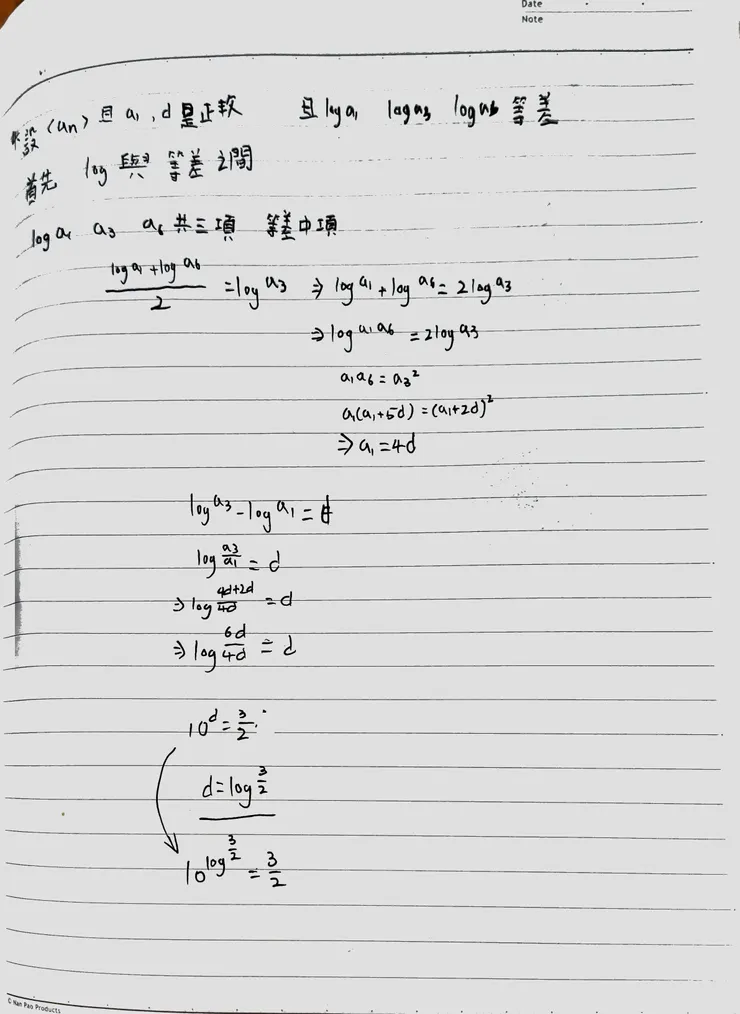 Date
Note
設⟨an⟩且 a₁, d 是正數 且 log a₁ log a₃ log a₆ 等差
首先 log 與 等差之間
log a₁ a₃ a₆ 共三項 等差中項
(log a₁ + log a₆)/2 = log a₃ ⇒ log a₁ + log a₆ = 2 log a₃
⇒ log a₁a₆ = 2 log a₃
a₁a₆ = a₃²
a₁(a₁+5d) = (a₁+2d)²
⇒ a₁ = 4d
log a₃ - log a₁ = d
log a₃/a₁ = d
⇒ log (4d+2d)/4d = d
⇒ log 6d/4d = d
10^d = 3/2
d = log 3/2
10^(log 3/2) = 3/2
© Nan Pao Products